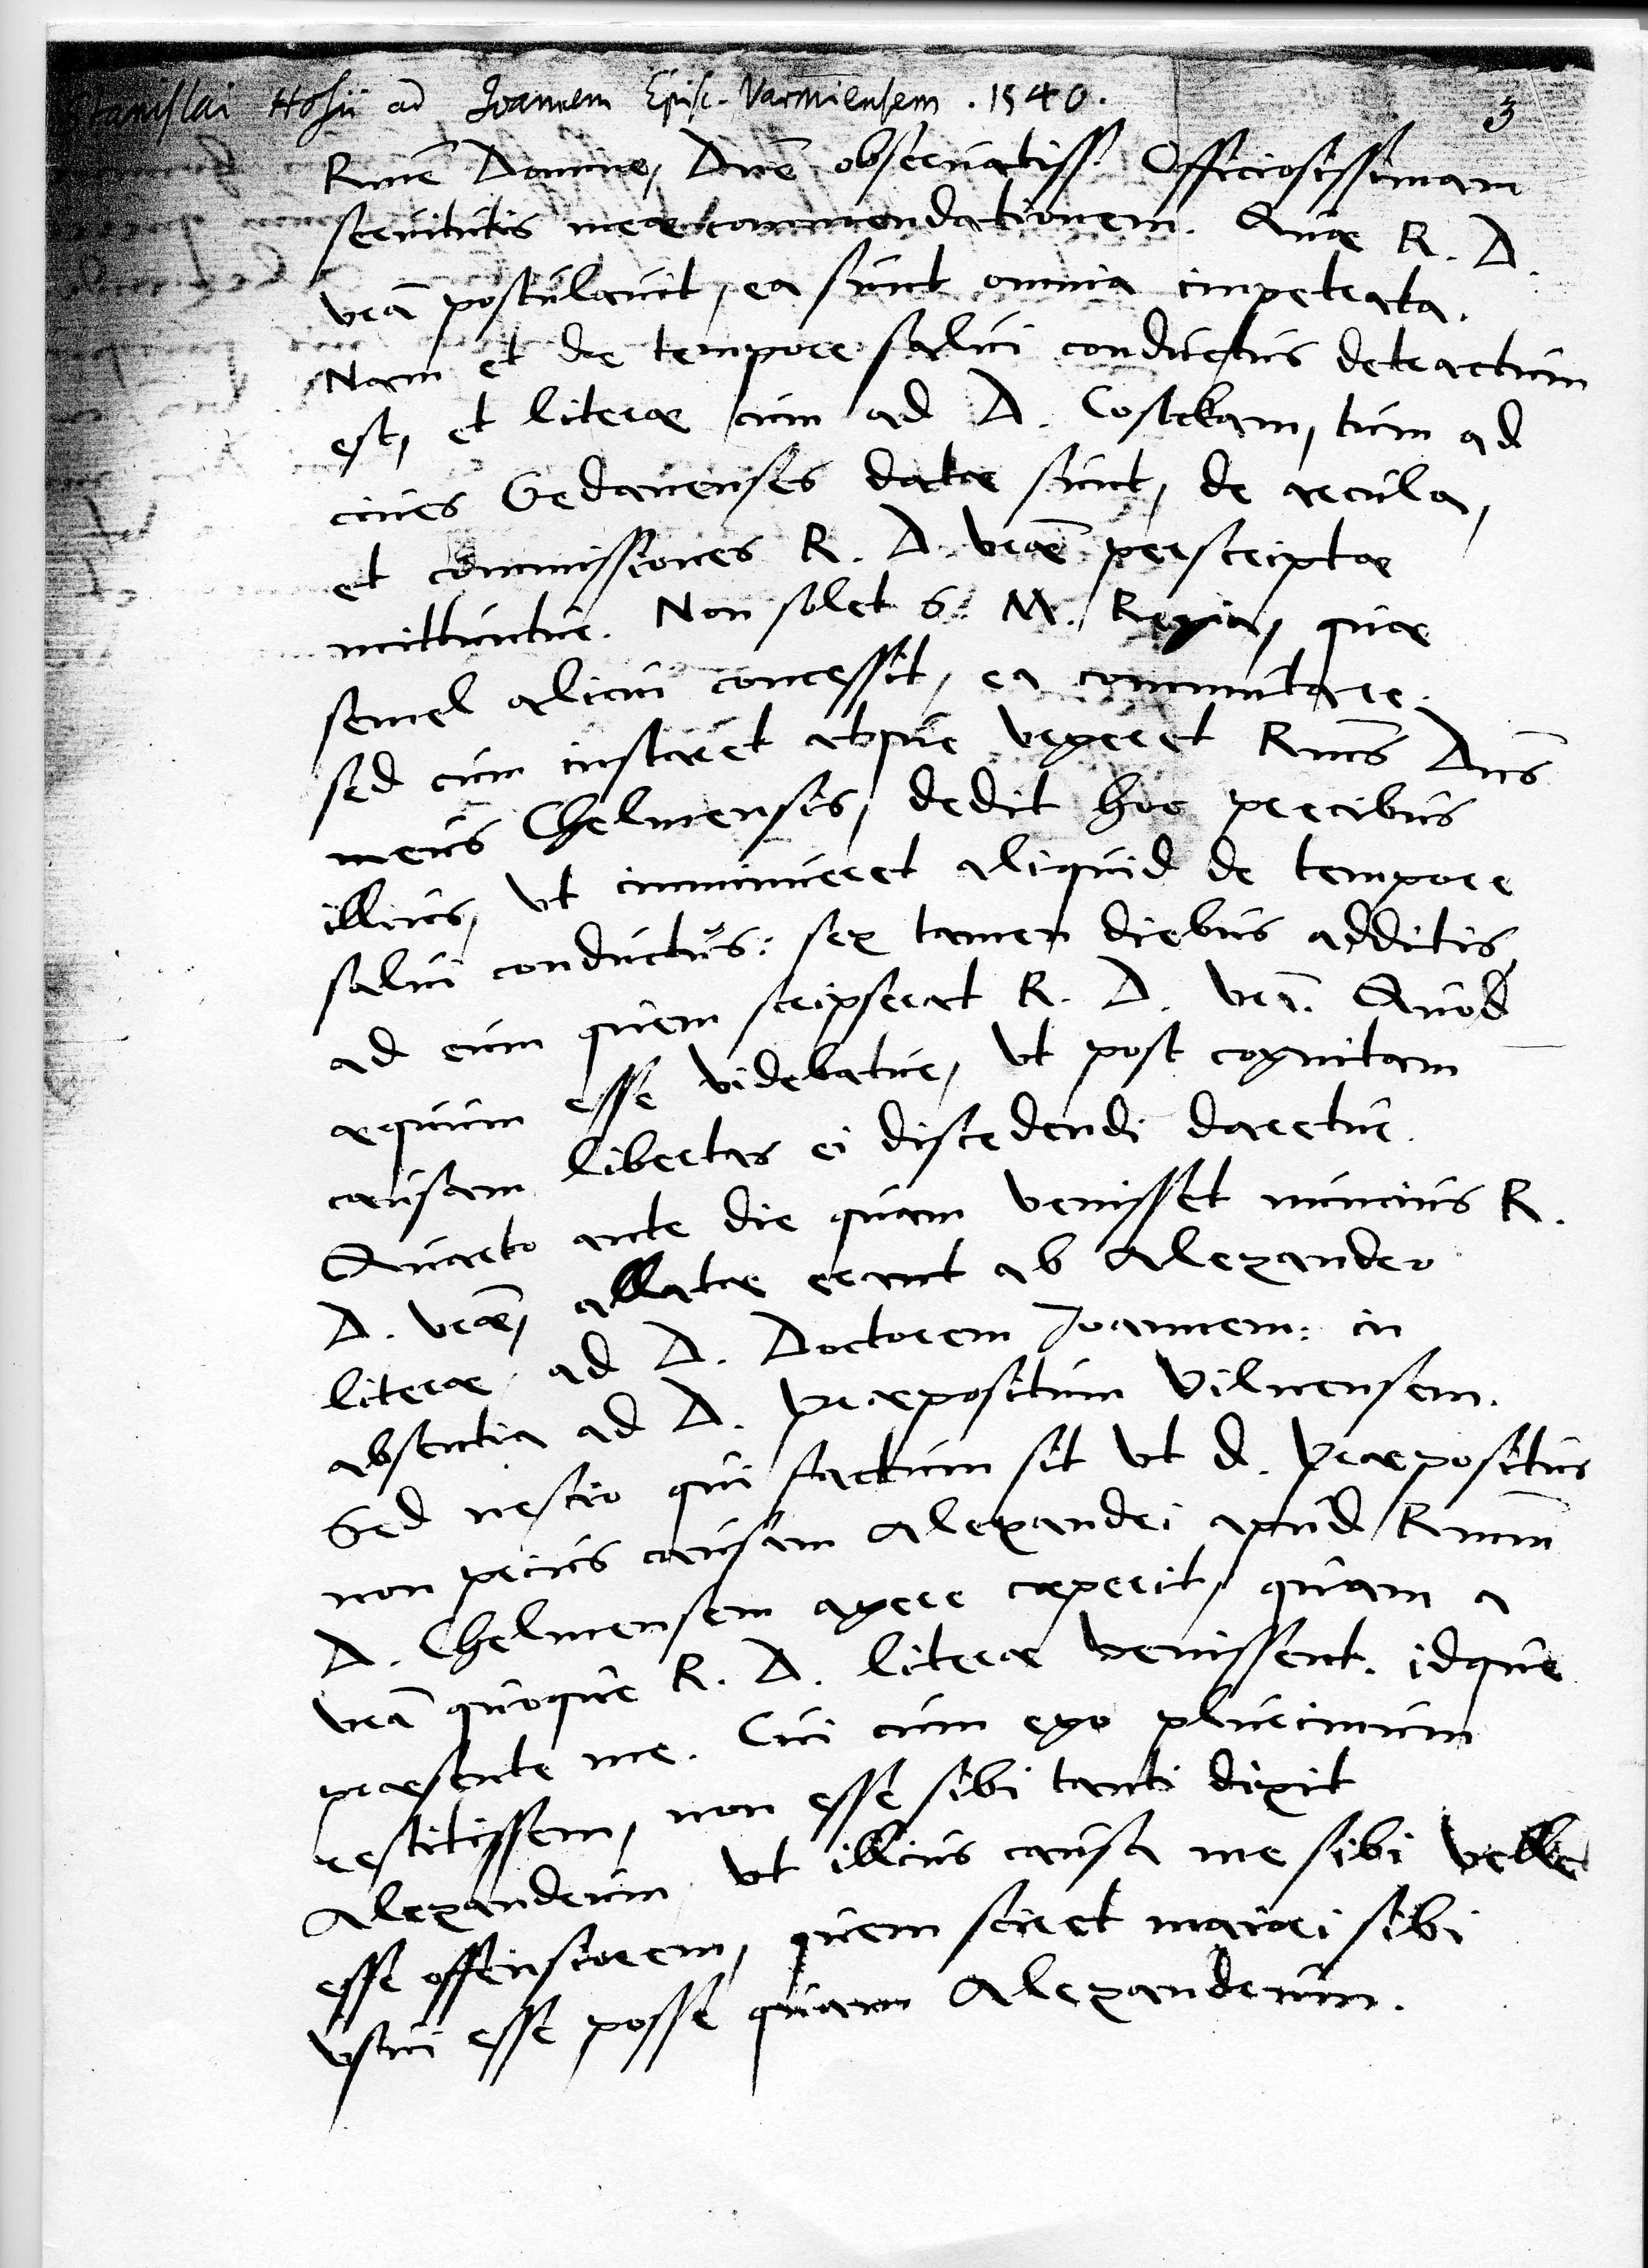 Stanislai Hosii ad Joannem Episc. Varmiensem . 1540.
3
Rme Domine, Dne observatiss. Officiosissimam
servitutis meae commendationem. Quae R. D.
vra postulavit, ea sunt omnia impetrata.
Nam et de tempore salvi conductus detractum
est, et literae cum ad D. Costekam, tum ad
cives Gedanenses datae sunt, de arcula,
et commissiones R. D. vrae perscriptae
mittuntur. Non solet S. M. Regia, quae
semel alicui concessit, ea commutare.
sed cum instaret atque urgeret Rmus Dns
meus Chelmensis, dedit hoc precibus
illius, ut imminueret aliquid de tempore
salvi conductus: sex tamen diebus additis,
ad eum quem scripserat R. D. vra. Quod
aequum esse videbatur, ut post cognitam
causam libertas ei discedendi daretur.
Quarto ante die quam venisset nuncius R.
D. vrae, allatae erant ab Alexandro
literae, ad D. Doctorem Joannem: in
absentia ad D. Praepositum Vilnensem.
Sed nescio qui factum sit ut d. Praepositus
non prius causam Alexandri apud Rmum
D. Chelmensem agere caeperit, quam a
vra quoque R. D. literae venissent. idque
praesente me. Cui cum ego plurimum
restitissem, non esse sibi tanti dixit
Alexandrum, ut illius causa me sibi velle
esse offensiorem, quem sciret maiori sibi
usui esse posse quam Alexandrum.